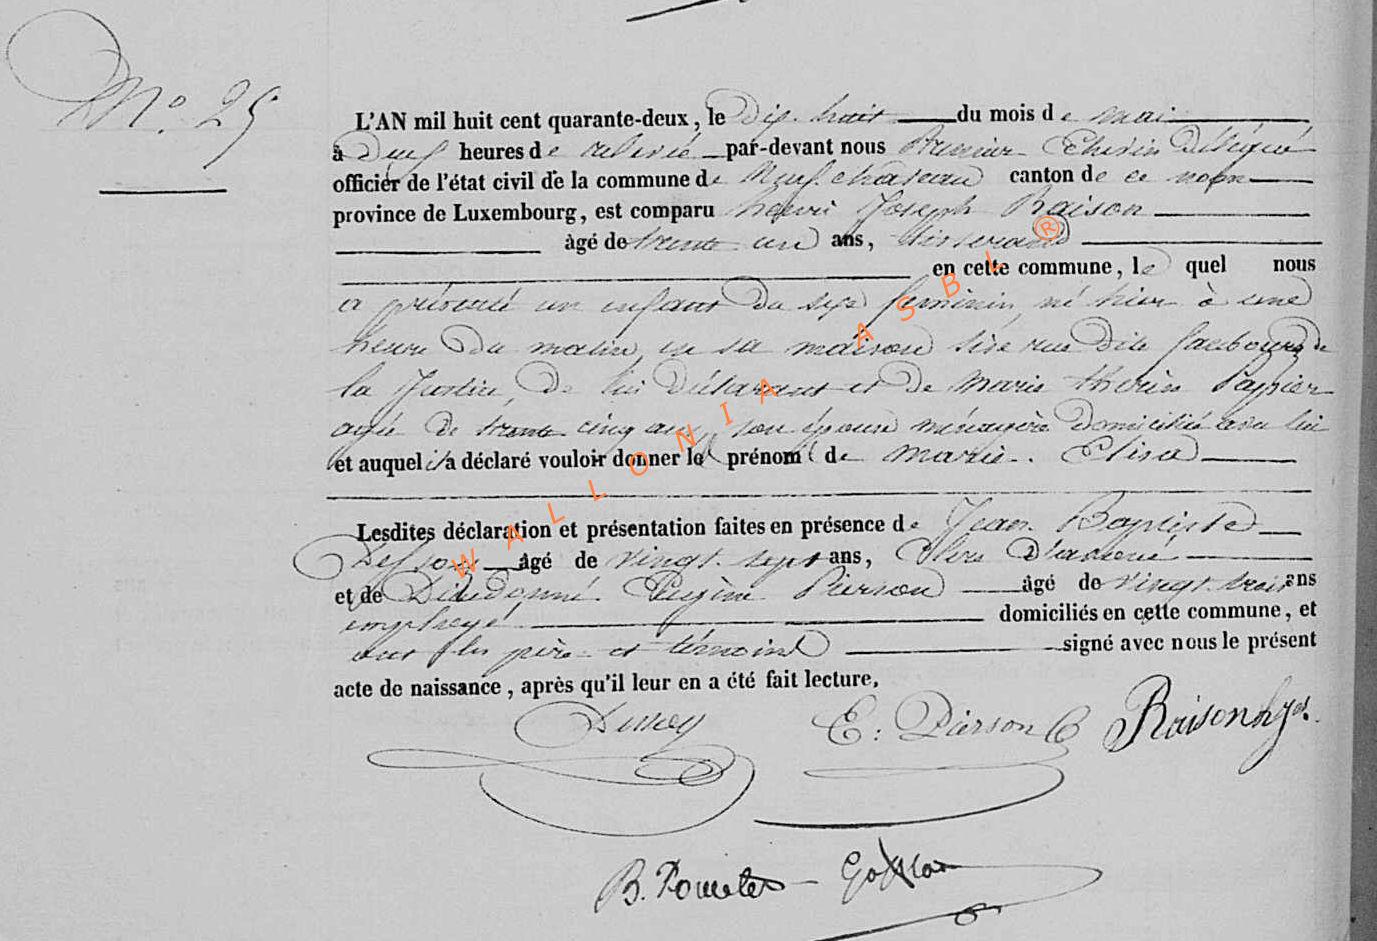 No. 25
L'AN mil huit cent quarante-deux, le dix huit du mois de mai
à deux heures de relevée par-devant nous Premier Echevin délégué
officier de l'état civil de la commune de Neufchateau canton de ce nom
province de Luxembourg, est comparu henri Joseph Raison
âgé de trente un ans, tisserand
en cette commune, le quel nous
a présenté un enfant du sexe feminin, né hier à une
heure du matin, en sa maison sise rue dite faubourg de
la Justice, de lui déclarant et de Marie therèse Papier
agée de trente cinq ans, son épouse ménagère domiciliée avec lui
et auquel il a déclaré vouloir donner le prénom de Marie. Elise
Lesdites déclaration et présentation faites en présence de Jean Baptiste
âgé de vingt sept ans, Clerc d'avoué
et de Dieudonné Eugène Pierson âgé de vingt trois ans
employé domiciliés en cette commune, et
ont les père et témoins signé avec nous le présent
acte de naissance, après qu'il leur en a été fait lecture.
E: Pierson Raison hy jos.
B.
WALLONIA ASBL ®